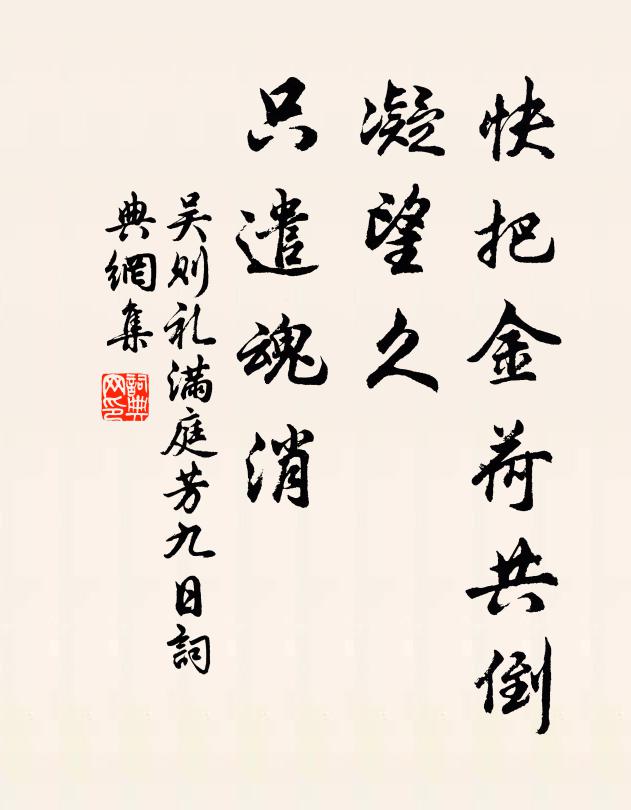 快把金荷共倒
凝望久
只遣魂消
吴则礼满庭芳九日詞
典網集
詞典网印